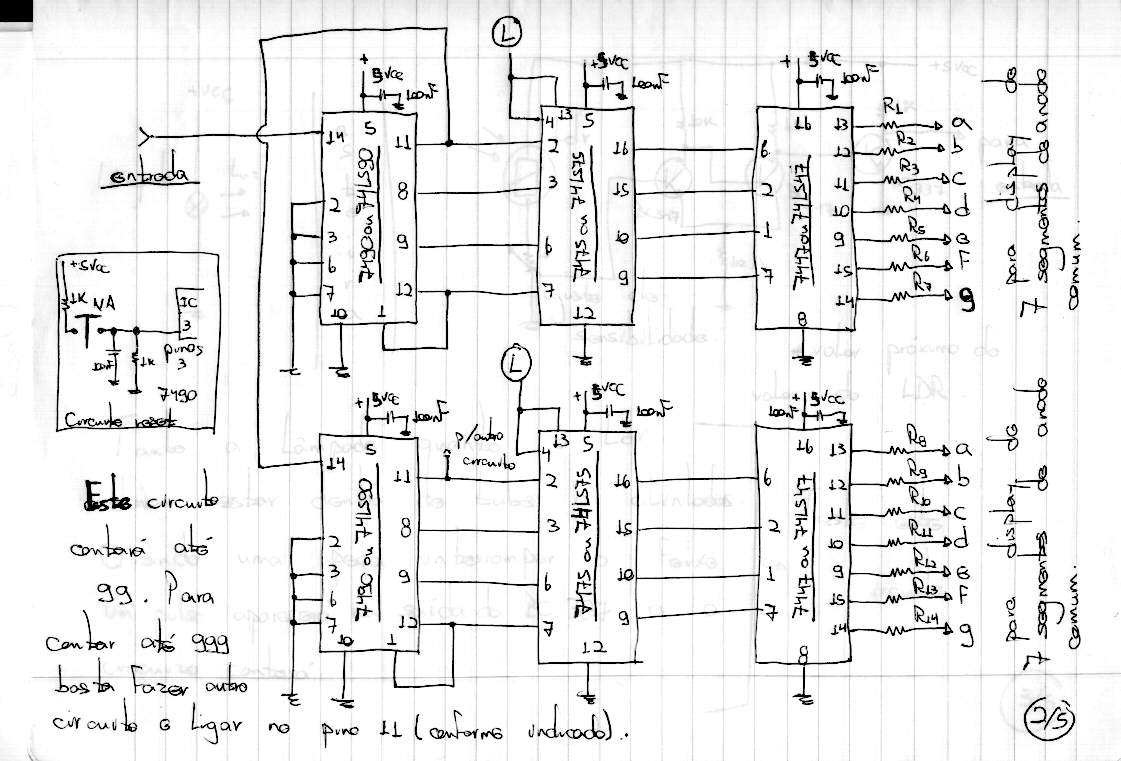 L
+
5Vcc
100nF
+5Vcc
100nF
+
5Vcc
100nF
entrada
14
5
11
8
9
12
2
3
6
7
10
1
7490 ou 74LS90
4
13
5
2
3
6
7
16
15
10
9
12
7475 ou 74LS75
16
6
2
1
7
13
12
11
10
9
15
14
8
7447 ou 74LS47
R1
a
R2
b
R3
c
R4
d
R5
e
R6
F
R7
g
para display de
7 segmentos de anodo
comum.
+5Vcc
1K
NA
IC
3
pinos
3
100nF
1K
7490
Circuito reset
+
5Vcc
100nF
L
+
5Vcc
100nF
+
5Vcc
100nF
14
5
11
8
9
12
2
3
6
7
10
1
7490 ou 74LS90
p/outro
circuito
13
4
5
2
3
6
7
16
15
10
9
12
7475 ou 74LS75
16
6
2
1
7
13
12
11
10
9
15
14
8
7447 ou 74LS47
R8
a
R9
b
R10
c
R11
d
R12
e
R13
F
R14
g
para display de
7 segmentos de anodo
comum.
Este circuito
contará até
99. Para
contar até 999
basta fazer outro
circuito e ligar no pino 11 (conforme indicado).
2/5